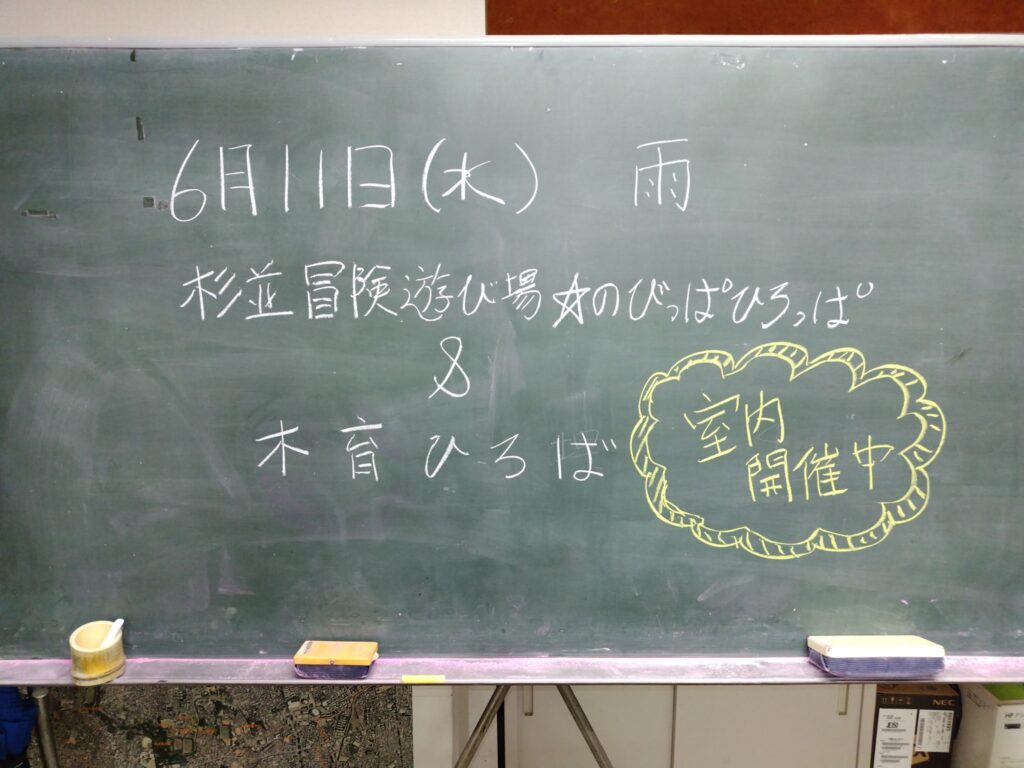 6月11日(水) 雨
杉並冒険遊び場☆のびっぱひろっぱ
&
木育ひろば
室内
開催中
NEC
HP